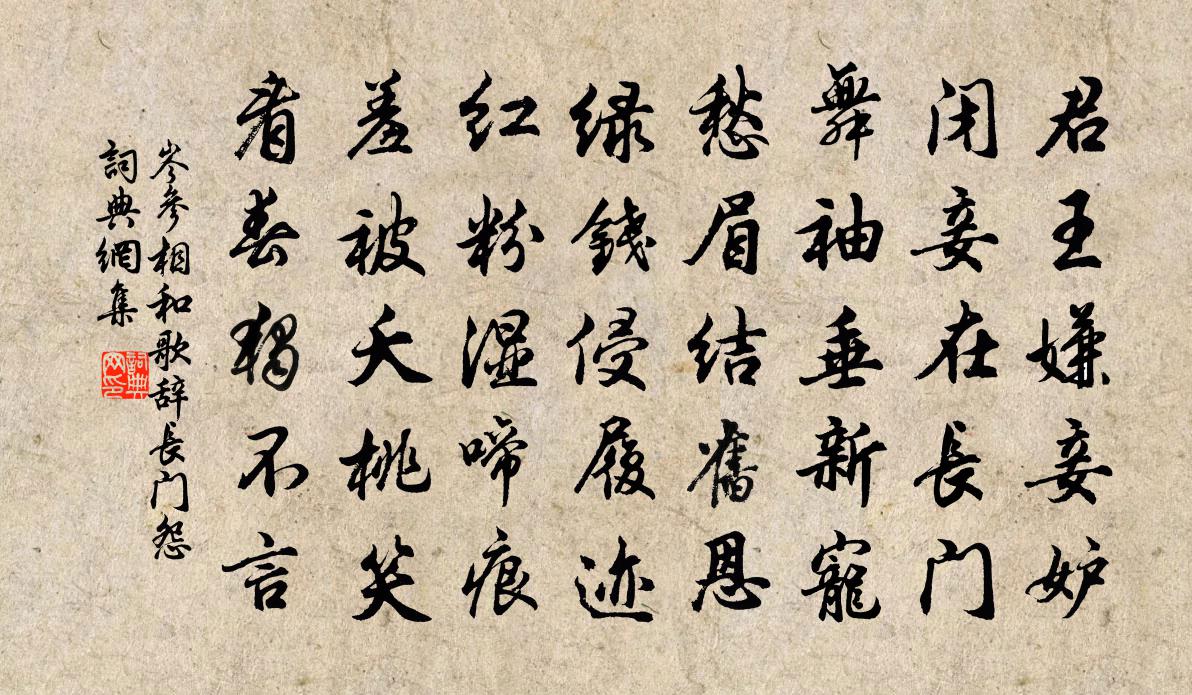 君王嫌妾妒
闭妾在長门
舞袖垂新寵
愁眉結舊恩
绿錢侵履迹
红粉濕啼痕
羞被夭桃笑
看春獨不言
岑參相和歌辞長门怨
詞典網集
詞典网印